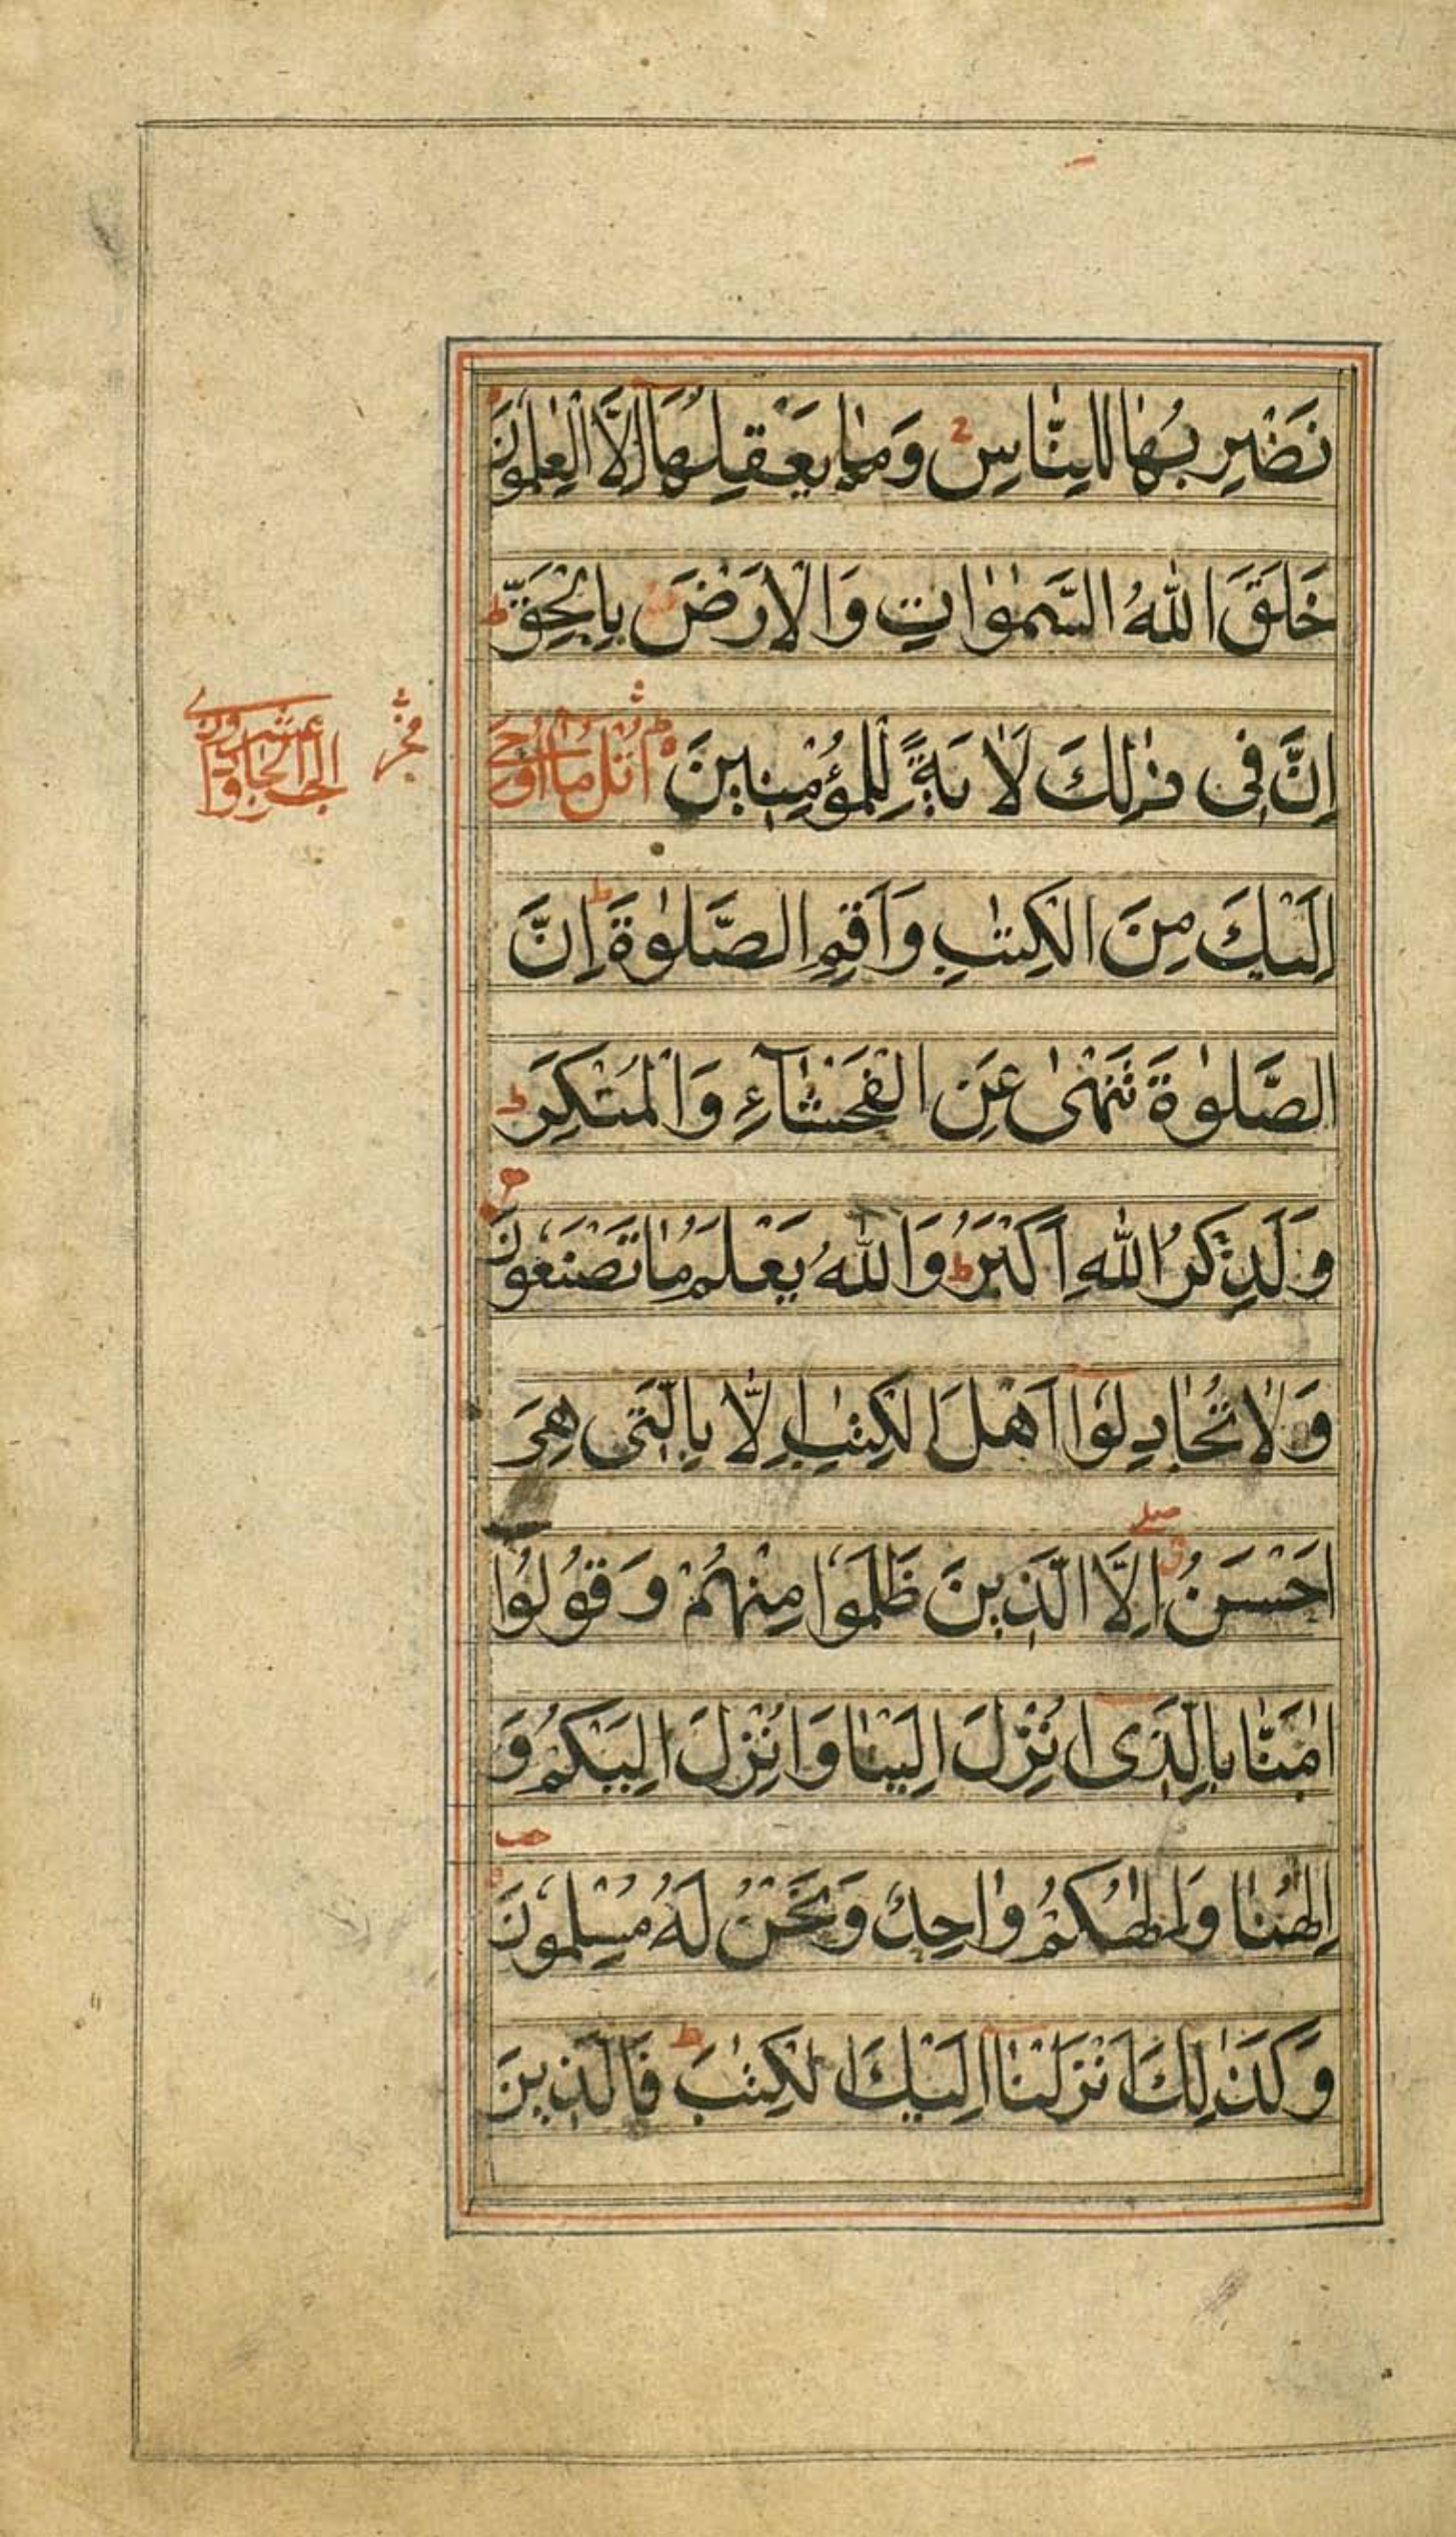 نَضْرِبُهَا لِلنَّاسِ وَمَا يَعْقِلُهَا إِلَّا الْعٰلِمُونَ
خَلَقَ اللّٰهُ السَّمٰوَاتِ وَالْاَرْضَ بِالْحَقِّ ط
اِنَّ فِى ذٰلِكَ لَاٰيَةً لِلْمُؤْمِنِينَ اُتْلُ مَا اُوحِىَ
اِلَيْكَ مِنَ الْكِتٰبِ وَاَقِمِ الصَّلٰوةَ ط اِنَّ
الصَّلٰوةَ تَنْهٰى عَنِ الْفَحْشَآءِ وَالْمُنْكَرِ ط
وَلَذِكْرُ اللّٰهِ اَكْبَرُ ط وَاللّٰهُ يَعْلَمُ مَا تَصْنَعُونَ
وَلَا تُجَادِلُوا اَهْلَ الْكِتٰبِ اِلَّا بِالَّتِى هِىَ
اَحْسَنُ اِلَّا الَّذِينَ ظَلَمُوا مِنْهُمْ وَقُولُوا
اٰمَنَّا بِالَّذِى اُنْزِلَ اِلَيْنَا وَاُنْزِلَ اِلَيْكُمْ وَ
اِلٰهُنَا وَاِلٰهُكُمْ وَاحِدٌ وَنَحْنُ لَهُ مُسْلِمُونَ
وَكَذٰلِكَ اَنْزَلْنَا اِلَيْكَ الْكِتٰبَ ط فَالَّذِينَ